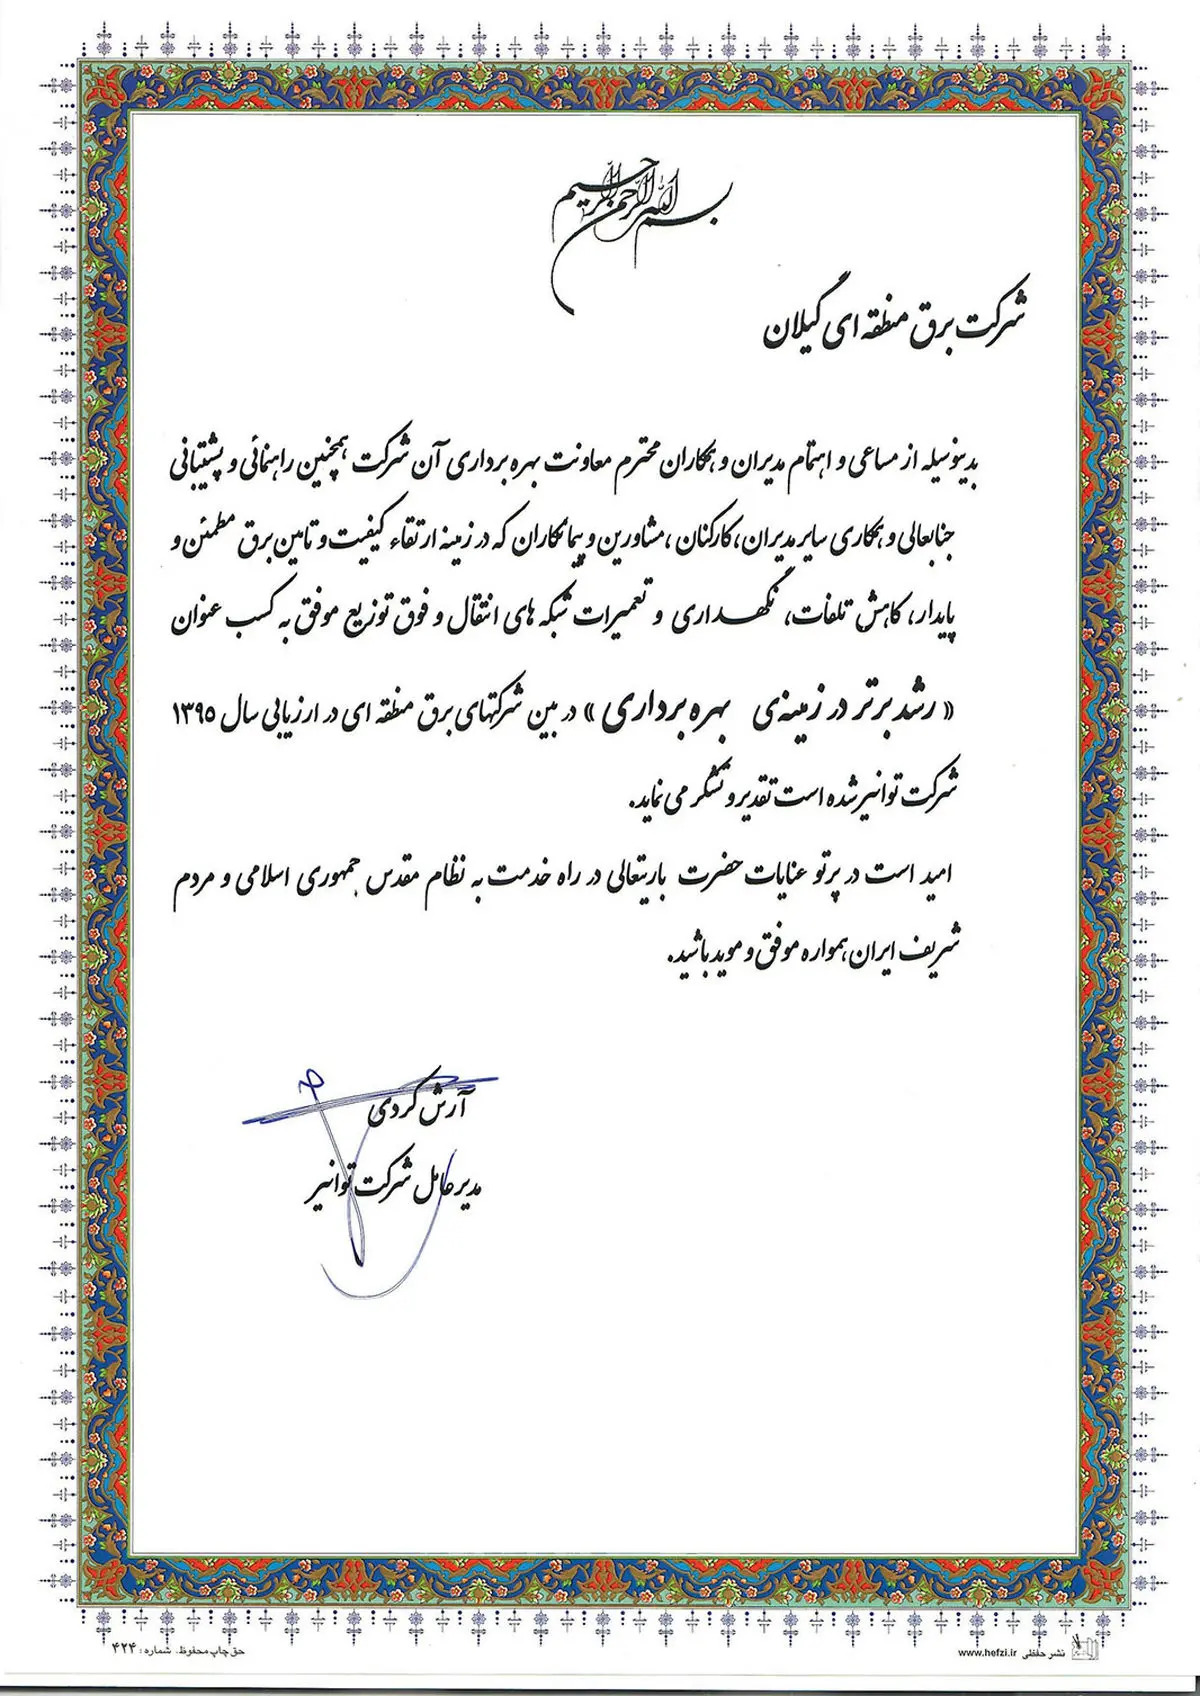 بسم الله الرحمن الرحیم
شرکت برق منطقه ای گیلان
بدینوسیله از مساعی و اهتمام مدیران و همکاران محترم معاونت بهره برداری آن شرکت همچنین راهنمائی و پشتیبانی
جنابعالی و همکاری سایر مدیران، کارکنان، مشاورین و پیمانکاران که در زمینه ارتقاء کیفیت و تامین برق مطمئن و
پایدار، کاهش تلفات، نگهداری و تعمیرات شبکه های انتقال و فوق توزیع موفق به کسب عنوان
« رشد برتر در زمینه‌ی بهره برداری » در بین شرکتهای برق منطقه ای در ارزیابی سال ۱۳۹۵
شرکت توانیر شده است تقدیر و تشکر می نماید.
امید است در پرتو عنایات حضرت باریتعالی در راه خدمت به نظام مقدس جمهوری اسلامی و مردم
شریف ایران، همواره موفق و موید باشید.
آرش کردی
مدیر عامل شرکت توانیر
نشر حفظی www.hefzi.ir
حق چاپ محفوظ. شماره: ۴۲۴